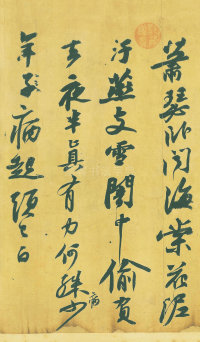 蕭瑟卧聞海棠花泥
汙燕支雪闇中偷負
去夜半真有力何殊少
年子病起須已白